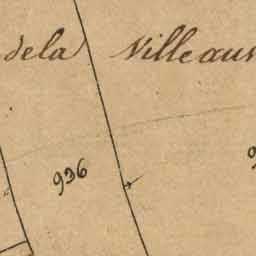 de la Ville aus
936